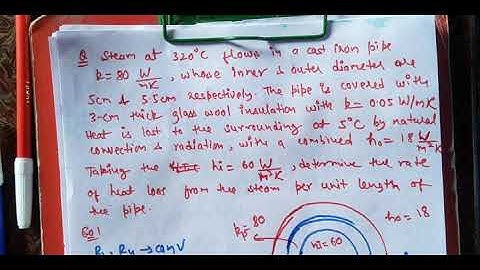 Q Steam at 320°C flows in a cast iron pipe
k = 80 W/mK, whose inner & outer diameter are
5cm & 5.5cm respectively. The pipe is covered with
3-cm thick glass wool insulation with k = 0.05 W/mK
Heat is lost to the surrounding at 5°C by natural
convection & radiation, with a combined ho = 18 W/m²K
Taking the hi = 60 W/m²K, determine the rate
of heat loss from the steam per unit length of
the pipe.
Sol
80
ho = 18
hi = 60
→ conv